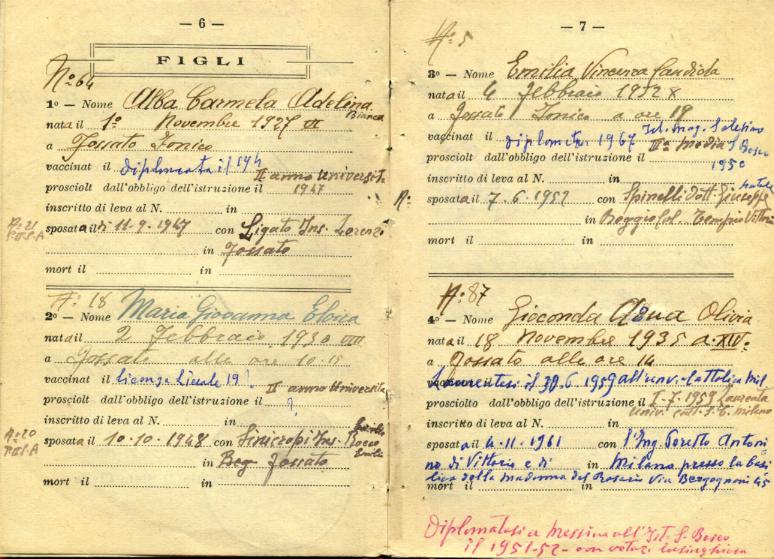 — 6 —
FIGLI
Nº 64
1º — Nome Alba Carmela Adelina
Bianca
nata il 1º Novembre 1927 VI
a Fossato Ionico
vaccinat il diplomata il 1944
II anno Università
prosciolt dall'obbligo dell'istruzione il 1947
inscritto di leva al N. in
sposata il dì 11-9-1947 con Ligato Ins. Lorenzo
in Fossato
mort il in
Nº 18
2º — Nome Maria Giovanna Eloisa
nata il 2 Febbraio 1930 VIII
a Fossato alle ore 10-15
vaccinat il licenza liceale 19
II anno Università
prosciolt dall'obbligo dell'istruzione il ?
inscritto di leva al N. in
Nº 20
P. II S. A
sposata il 10-10-1948 con Sinicropi Ins. Rocco
Emilio
in Reg. Fossato
mort il in
— 7 —
Nº 5
3º — Nome Emilia Vincenza Candida
nata il 4 Febbraio 1932 X
a Fossato Ionico a ore 19
vaccinat il diplomata 1967 Ist. mag.
IIª media S. Bosco
prosciolt dall'obbligo dell'istruzione il 1950
inscritto di leva al N. in
Nº
sposata il 7-6-1952 con Spinelli Dott. Giuseppe
in Reggio Cal. Tempio Vittoria
mort il in
Nº 87
4º — Nome Gioconda Anna Olivia
nata il 18 Novembre 1935 a. XIV.
a Fossato alle ore 14
vaccinat il Laureatasi il 30.6.1959 all'univ. Cattolica Mil
prosciolto dall'obbligo dell'istruzione il 1-7-1959 Laureata
univ. catt. S. C. Milano
inscritto di leva al N. in
sposata il 4-11-1961 con l'Ing. Poretto Antoni
no di Vittorio e di in Milano presso la basi
lica della Madonna del Rosario Via Bergognoni 45
mort il in
Diplomatasi a Messina all'Ist. S. Bosco
il 1951-52- con votaz. lusinghiera